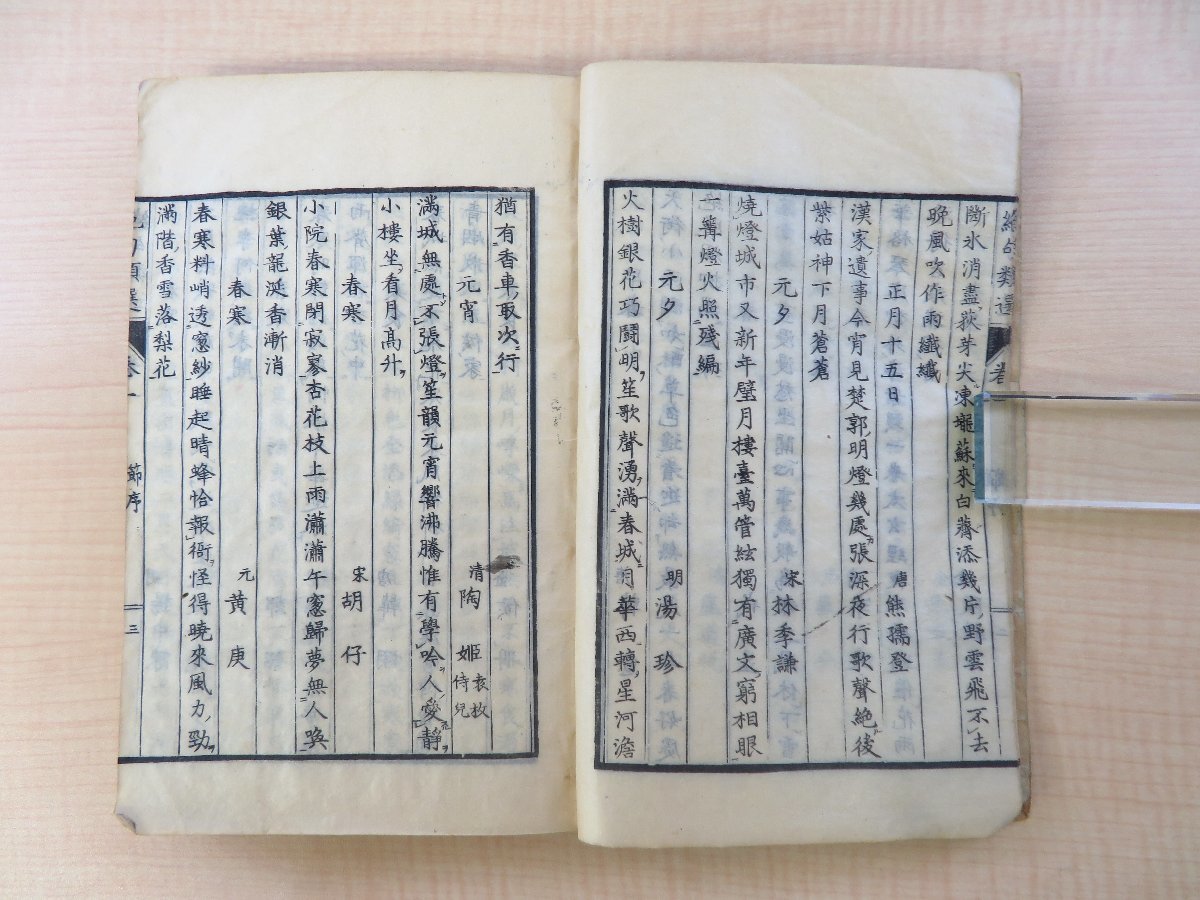 絶句類選 卷
斷氷消盡荻芽尖凍壠蘇來白薺添幾片野雲飛不去
晩風吹作雨纖纖
正月十五日 唐 熊孺登
漢家遺事今宵見楚郭明燈幾處張深夜行歌聲絶後
紫姑神下月蒼蒼
元夕 宋 林季謙
燒燈城市又新年璧月樓臺萬管絃獨有廣文窮相眼
一篝燈火照殘編
元夕 明 湯珍
火樹銀花巧鬪明笙歌聲湧滿春城月華西轉星河澹
猶有香車取次行
元宵 清 陶姬 袁枚侍兒
滿城無處不張燈笙韻元宵響沸騰惟有學吟人愛靜
小樓坐看月髙升
春寒 宋 胡仔
小院春寒閉寂寥杏花枝上雨瀟瀟午窻歸夢無人喚
銀葉龍涎香漸消
春寒 元 黄庚
春寒料峭透窻紗睡起晴蜂恰報衙怪得曉來風力勁
滿階香雪落梨花
句類選 卷一 節序 三